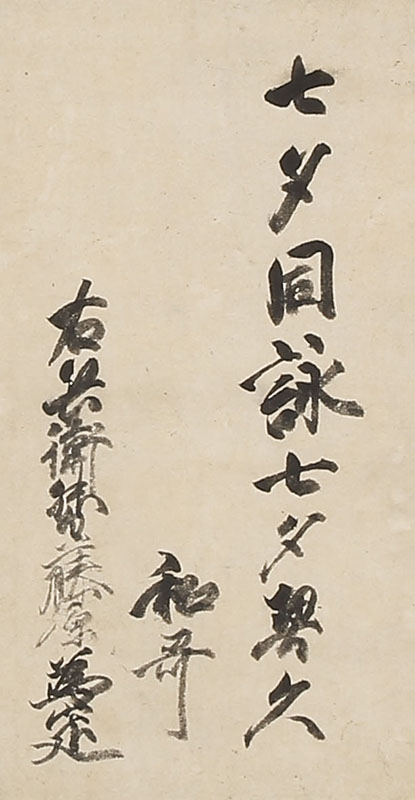 七夕同詠七夕契久
和哥
右兵衛督藤原為定